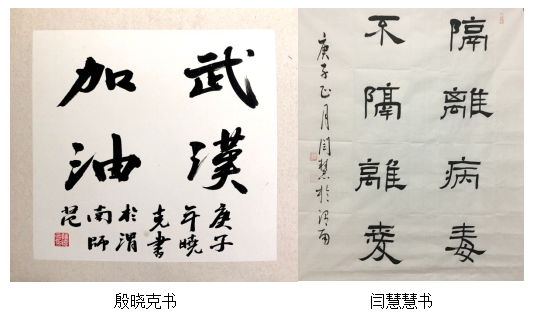 武漢
加油
庚子
年曉
克書
於渭
南師
范
隔離病毒
不隔離愛
庚子正月闫慧於渭南
殷晓克书
闫慧慧书